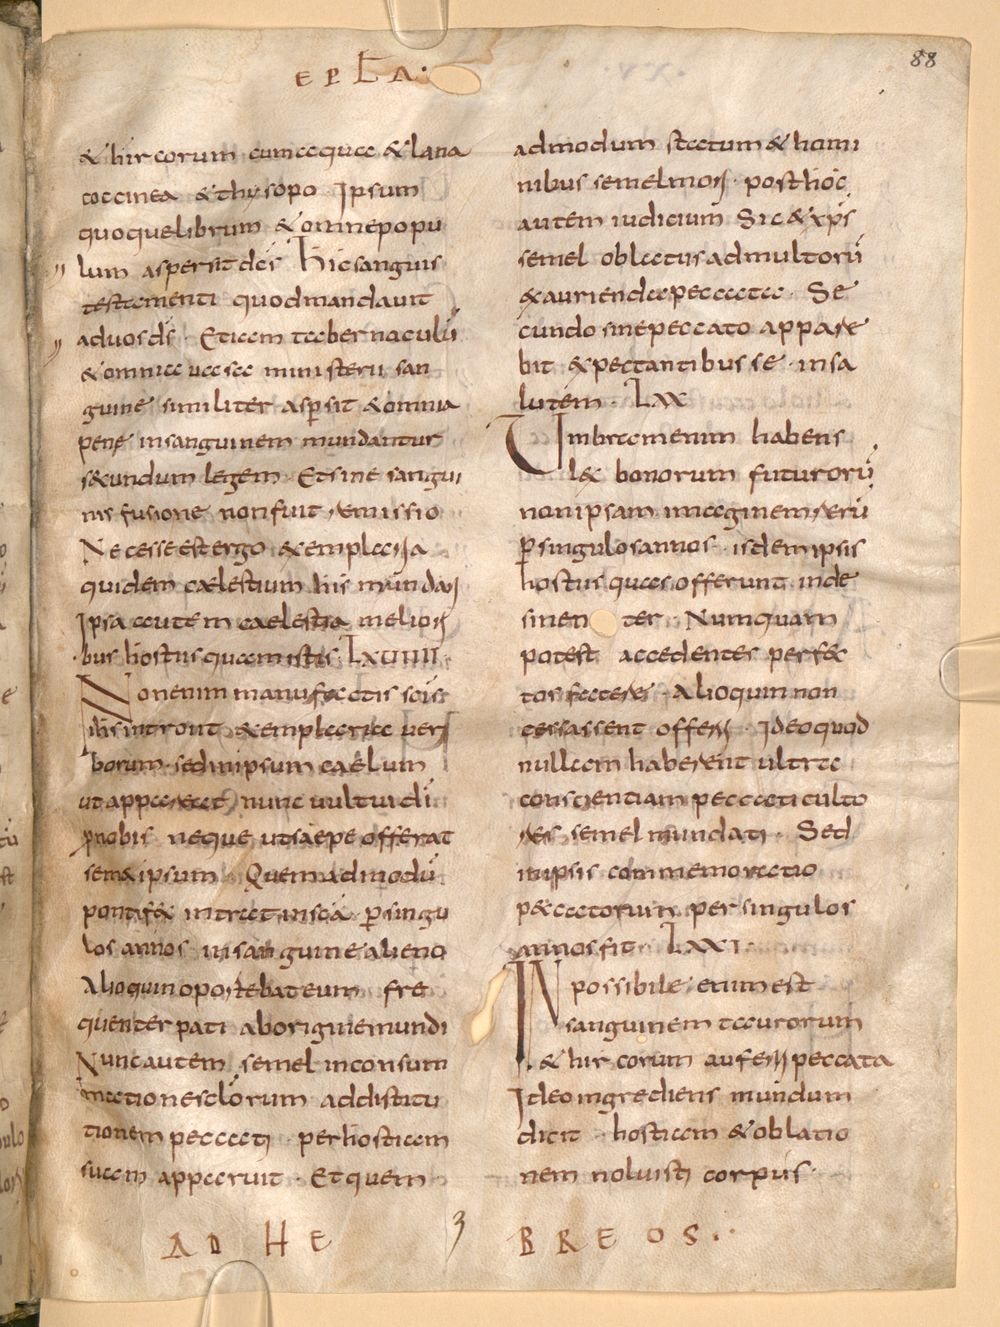 EPLA·
88
& hircorum cum aqua & lana
coccinea & hysopo Ipsum
quoque librum & omne popu
lum aspersit dčs Hic sanguis
testamenti quod mandavit
ad vos dš · Etiam tabernaculū
& omnia vasa ministerii san
guine similiter aspsit & omnia
pene in sanguinem mundantur
secundum legem · Et sine sangui
nis fusione non fuit remissio
Necesse est ergo exemplaria
quidem caelestium his mundari
Ipsa autem caelestia meliori
bus hostiis quam istis LXVIIII·
Non enim manufactis scis
ihs introiit exemplaria veri
borum · sed in ipsum caelum
ut appareat nunc vultui di
p nobis neque ut saepe offerat
sem& ipsum · Quemadmodū
pontifex intrat in scā p singu
los annos in sanguine alieno
Alioquin oportebat eum fre
quenter pati ab origine mundi
Nunc autem semel in consum
matione sclorum ad distitu
tionem peccati · per hostiam
suam apparuit · Et quem
admodum statum & homi
nibus semel mori · post hoc
autem iudicium Sic & xps
semel oblatus ad multorū
exaurienda peccata · Se
cundo sine peccato appare
bit expectantibus se · in sa
lutem · LXX
Umbram enim habens
lex bonorum futurorū
non ipsam imaginem rerū
p singulos annos · isdem ipsis
hostiis quas offerunt inde
sinen ter · Numquam
potest accedentes perfec
tos facere · Alioquin non
cessassent offerri · Ideo quod
nullam haberent ultra
conscientiam peccati culto
res semel mundati · Sed
in ipsis commemoratio
peccatorum per singulos
annos fit · LXXI·
INpossibile enim est
sanguinem taurorum
& hircorum auferri peccata
Ideo ingrediens mundum
dicit · hostiam & oblatio
nem noluisti corpus·
AD HE
3
BREOS··